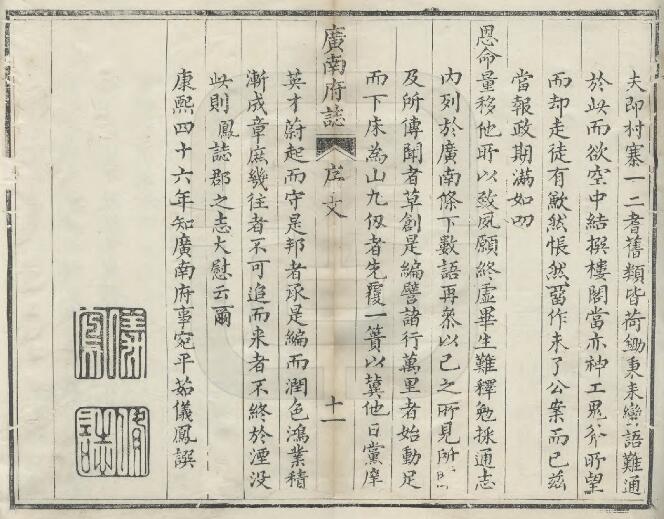 夫即村寨一二耆舊類皆荷鋤秉耒蠻語難通
於此而欲空中結撰樓閣當亦神工鬼斧所望
而却走徒有歉然悵然畱作未了公案而已茲
當報政期滿如叨
恩命量移他所以致夙願終虛畢生難釋勉採通志
內列於廣南條下數語再叅以己之所見所
及所傳聞者草創是編譬諸行萬里者始動足
而下床為山九仭者先覆一簣以冀他日黨庠
廣南府誌
序文
十一
英才蔚起而守是邦者承是編而潤色鴻業積
漸成章庶幾往者不可追而来者不終於湮没
此則鳳誌郡之志大慰云爾
康熙四十六年知廣南府事宛平茹儀鳳譔
儀鳳
誌